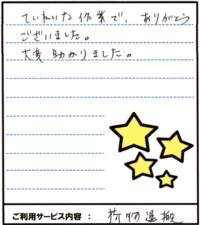 ていねいな作業で、ありがとう
ございました。
大変助かりました。
ご利用サービス内容： 荷物運搬